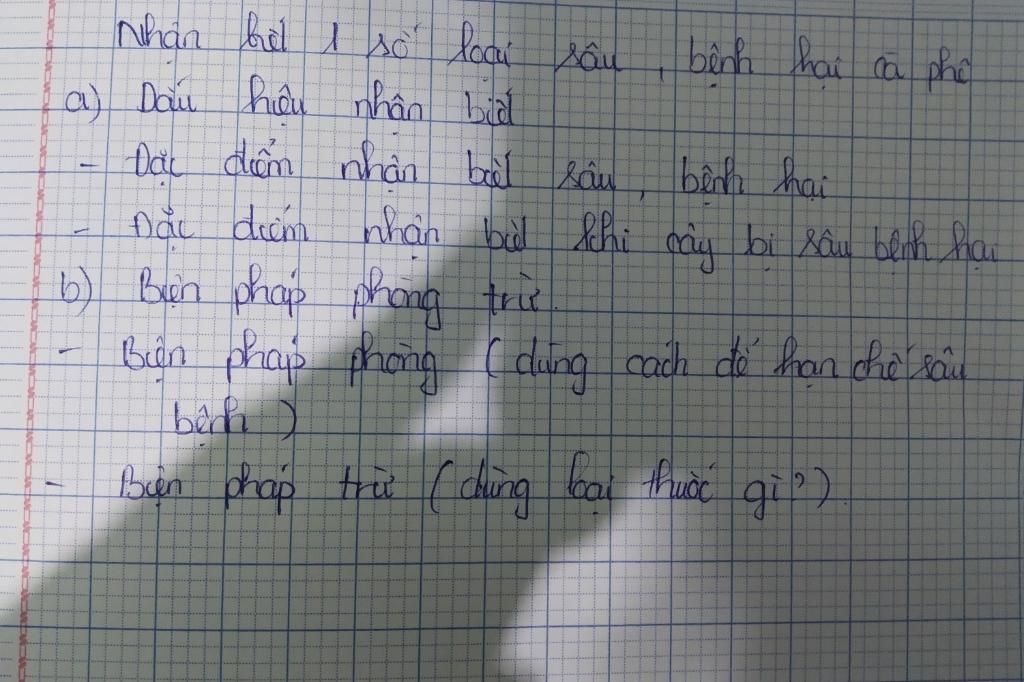 Nhận biết 1 số loại sâu, bệnh hại cà phê
a) Dấu hiệu nhận biết
- Đặc điểm nhận biết sâu, bệnh hại
- Đặc điểm nhận biết khi cây bị sâu bệnh hại
b) Biện pháp phòng trừ.
- Biện pháp phòng (dùng cách để hạn chế sâu
bệnh)
- Biện pháp trừ (dùng loại thuốc gì?).